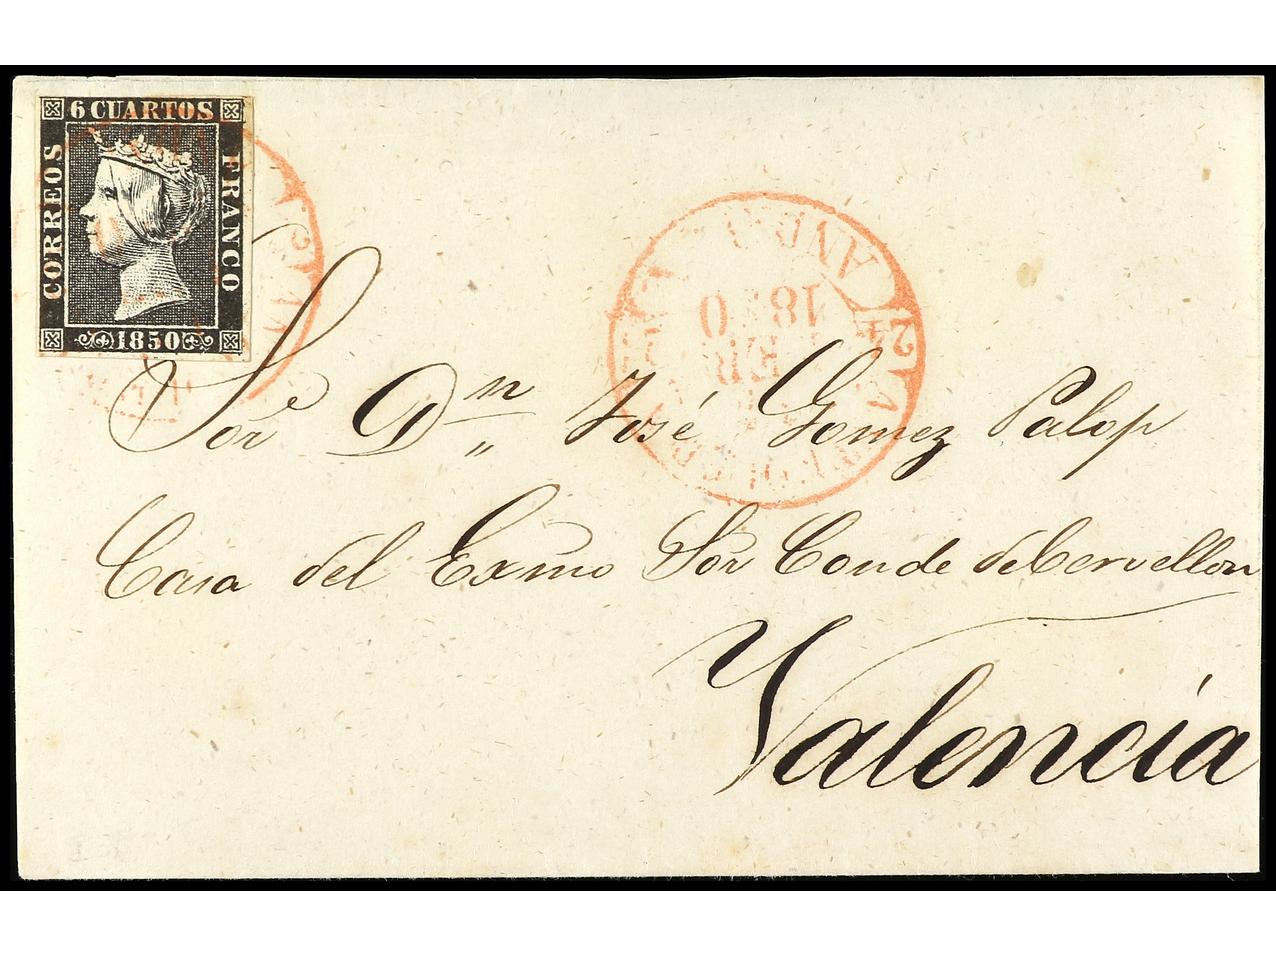 6 CUARTOS
CORREOS
FRANCO
1850
Sor Dn José Gomez Palop
Casa del Exmo Sor Conde de Cervellon
Valencia